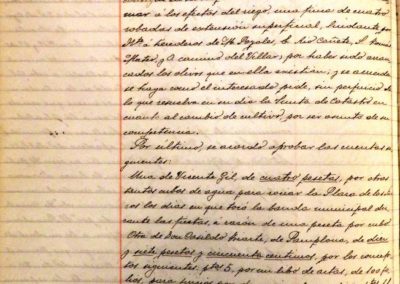 mar á los efectos del riego, una finca de cuatro
robadas de extensión superficial, lindante por
Norte á herederos de Royales, E. Rio Cañete, S.
Mateo, y O. camino del Villar, por haber sido arran-
cados los olivos que en ella existían; y se acuerda
se haga como el interesado pide, sin perjuicio de
lo que resuelva en su dia la Junta de Catastro en
cuanto al cambio de cultivo por ser asunto de su
competencia.
Por último, se acordó aprobar las cuentas si-
guientes:
Una de Vicente Gil, de cuatro pesetas, por otros
tantos cubos de agua para rociar la Plaza de
los dias en que tocó la banda municipal du-
rante las fiestas, á razón de una peseta por cubo
Otra de Don Casildo Iriarte, de Pamplona, de diez
y siete pesetas y cincuenta centimos, por los concep-
tos siguientes: ptas 5, por un libro de actas, de 100 fo-
lios, para